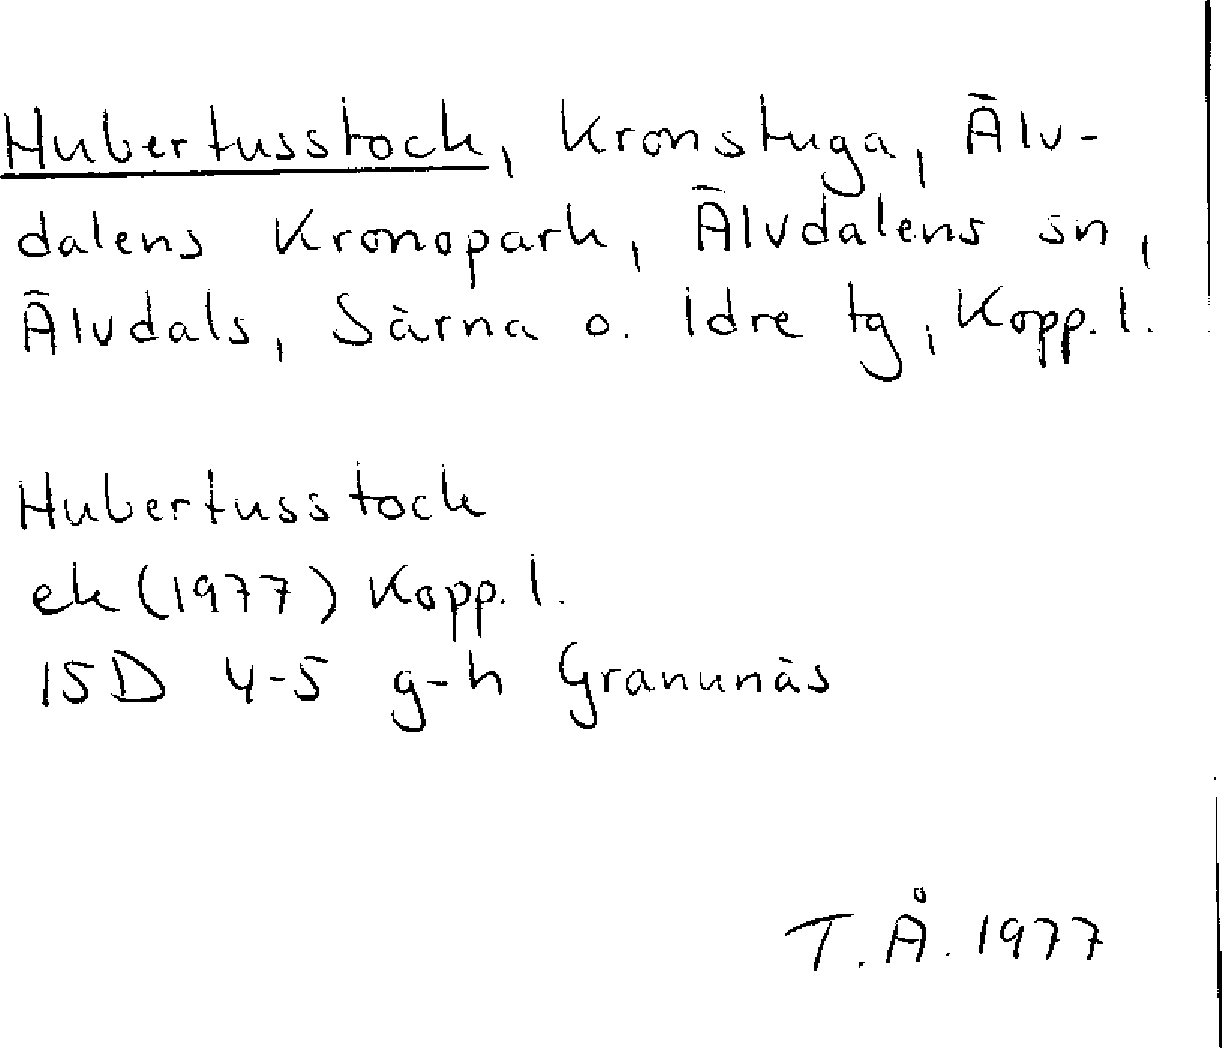 Hubertusstock, Kronstuga, Älv-
dalens Kronopark, Älvdalens sn,
Älvdals, Särna o. Idre tg, Kopp. l.
Hubertusstock
ek (1977) Kopp. l.
15D 4-5 g-h Granunäs
T. Å. 1977